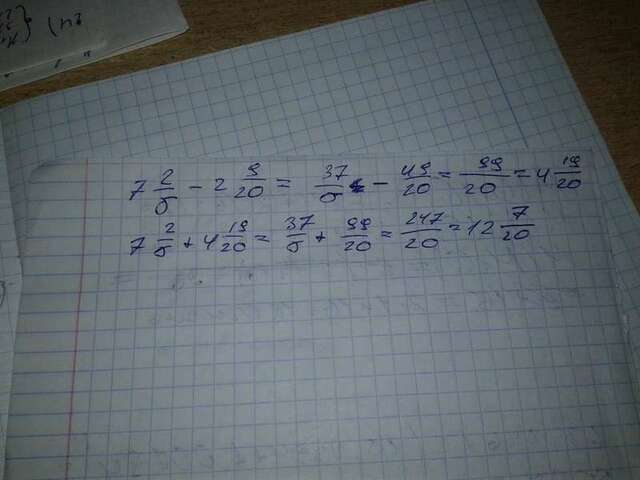 7 2/5 - 2 9/20 = 37/5 - 49/20 = 99/20 = 4 19/20
7 2/5 + 4 19/20 = 37/5 + 99/20 = 247/20 = 12 7/20